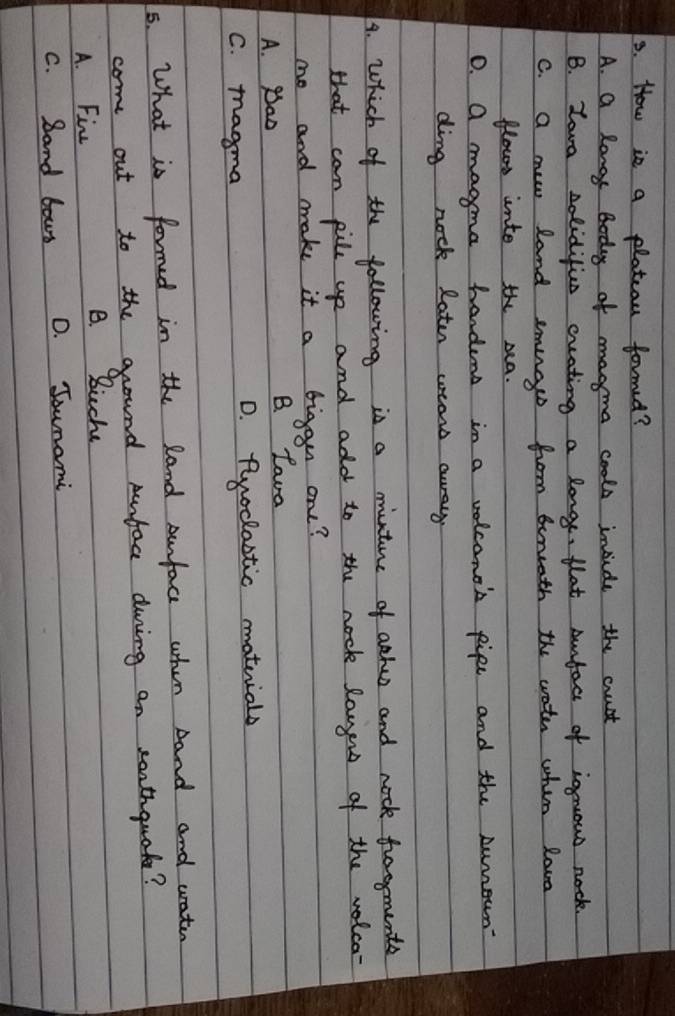 3. How is a plateau formed?
A. A large body of magma cools inside the crust
B. Lava solidifies creating a large, flat surface of igneous rock.
C. A new land emerges from beneath the water when lava
flows into the sea.
D. A magma hardens in a volcano's pipe and the surroun-
ding rock later wears away.
4. Which of the following is a mixture of ashes and rock fragments
that can pile up and add to the rock layers of the volca-
no and make it a bigger one?
A. Gas B. Lava
C. Magma D. Pyroclastic materials
5. What is formed in the land surface when sand and water
come out to the ground surface during an earthquake?
A. Fire B. Seiche
C. Sand bows D. Tsunami